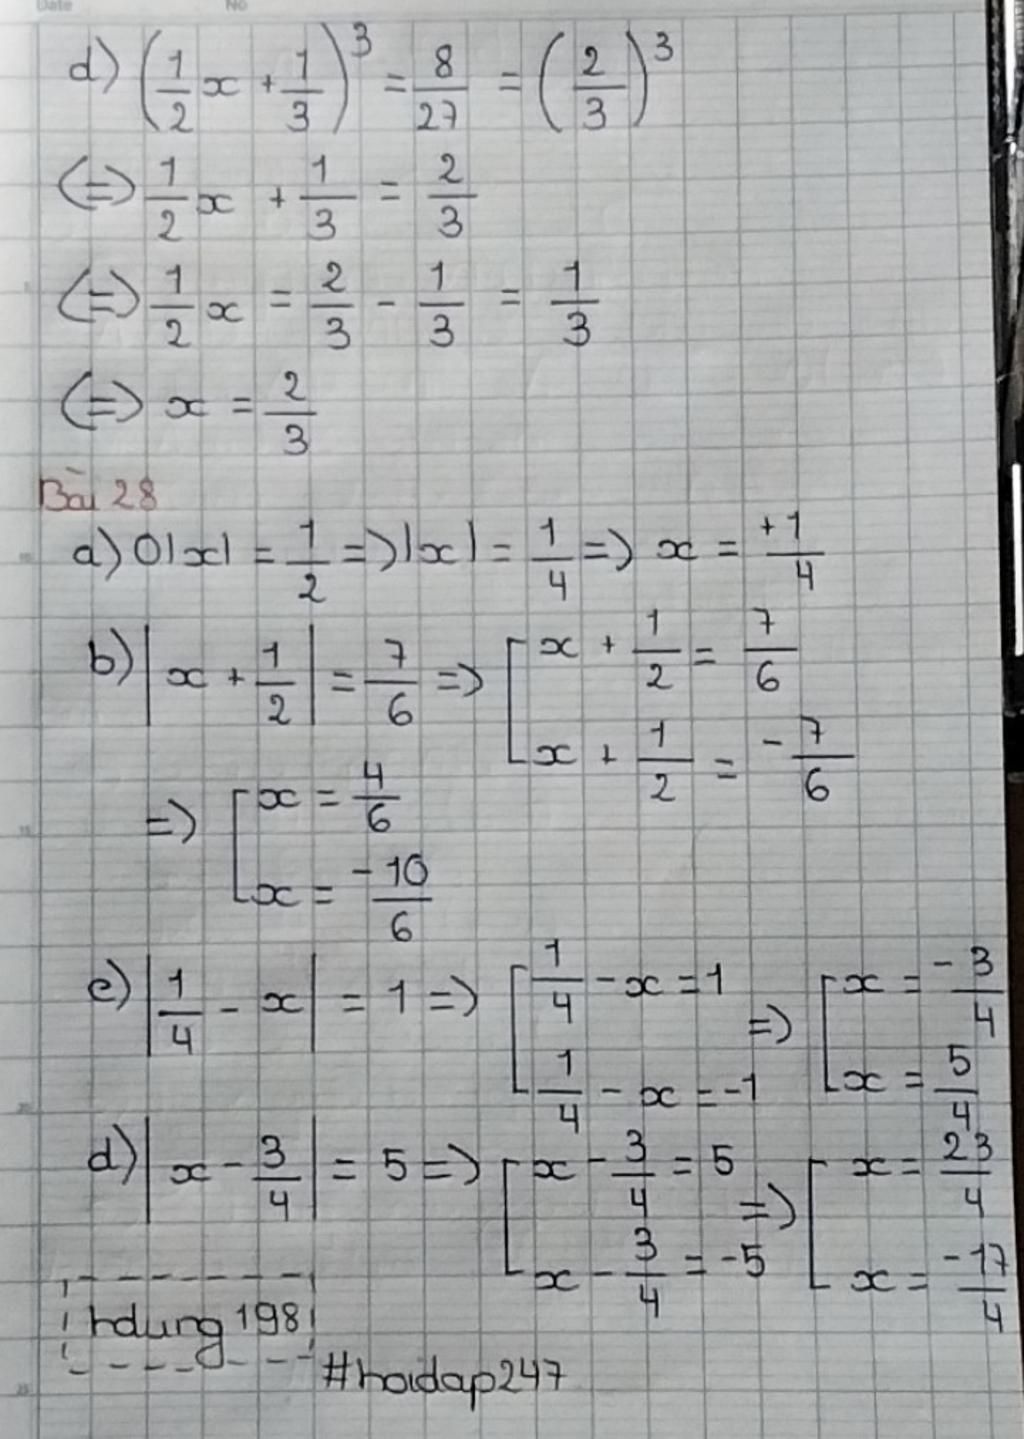 Date No
d) (1/2 x + 1/3)^3 = 8/27 = (2/3)^3
(=) 1/2 x + 1/3 = 2/3
(=) 1/2 x = 2/3 - 1/3 = 1/3
(=) x = 2/3
Bài 28
a) 0|x| = 1/2 => |x| = 1/4 => x = +1/4
b) |x + 1/2| = 7/6 => [x + 1/2 = 7/6
x + 1/2 = -7/6
=> [x = 4/6
x = -10/6
c) |1/4 - x| = 1 => [1/4 - x = 1 => [x = -3/4
1/4 - x = -1 x = 5/4
d) |x - 3/4| = 5 => [x - 3/4 = 5 => [x = 23/4
x - 3/4 = -5 x = -17/4
hdung198
#hoidap247